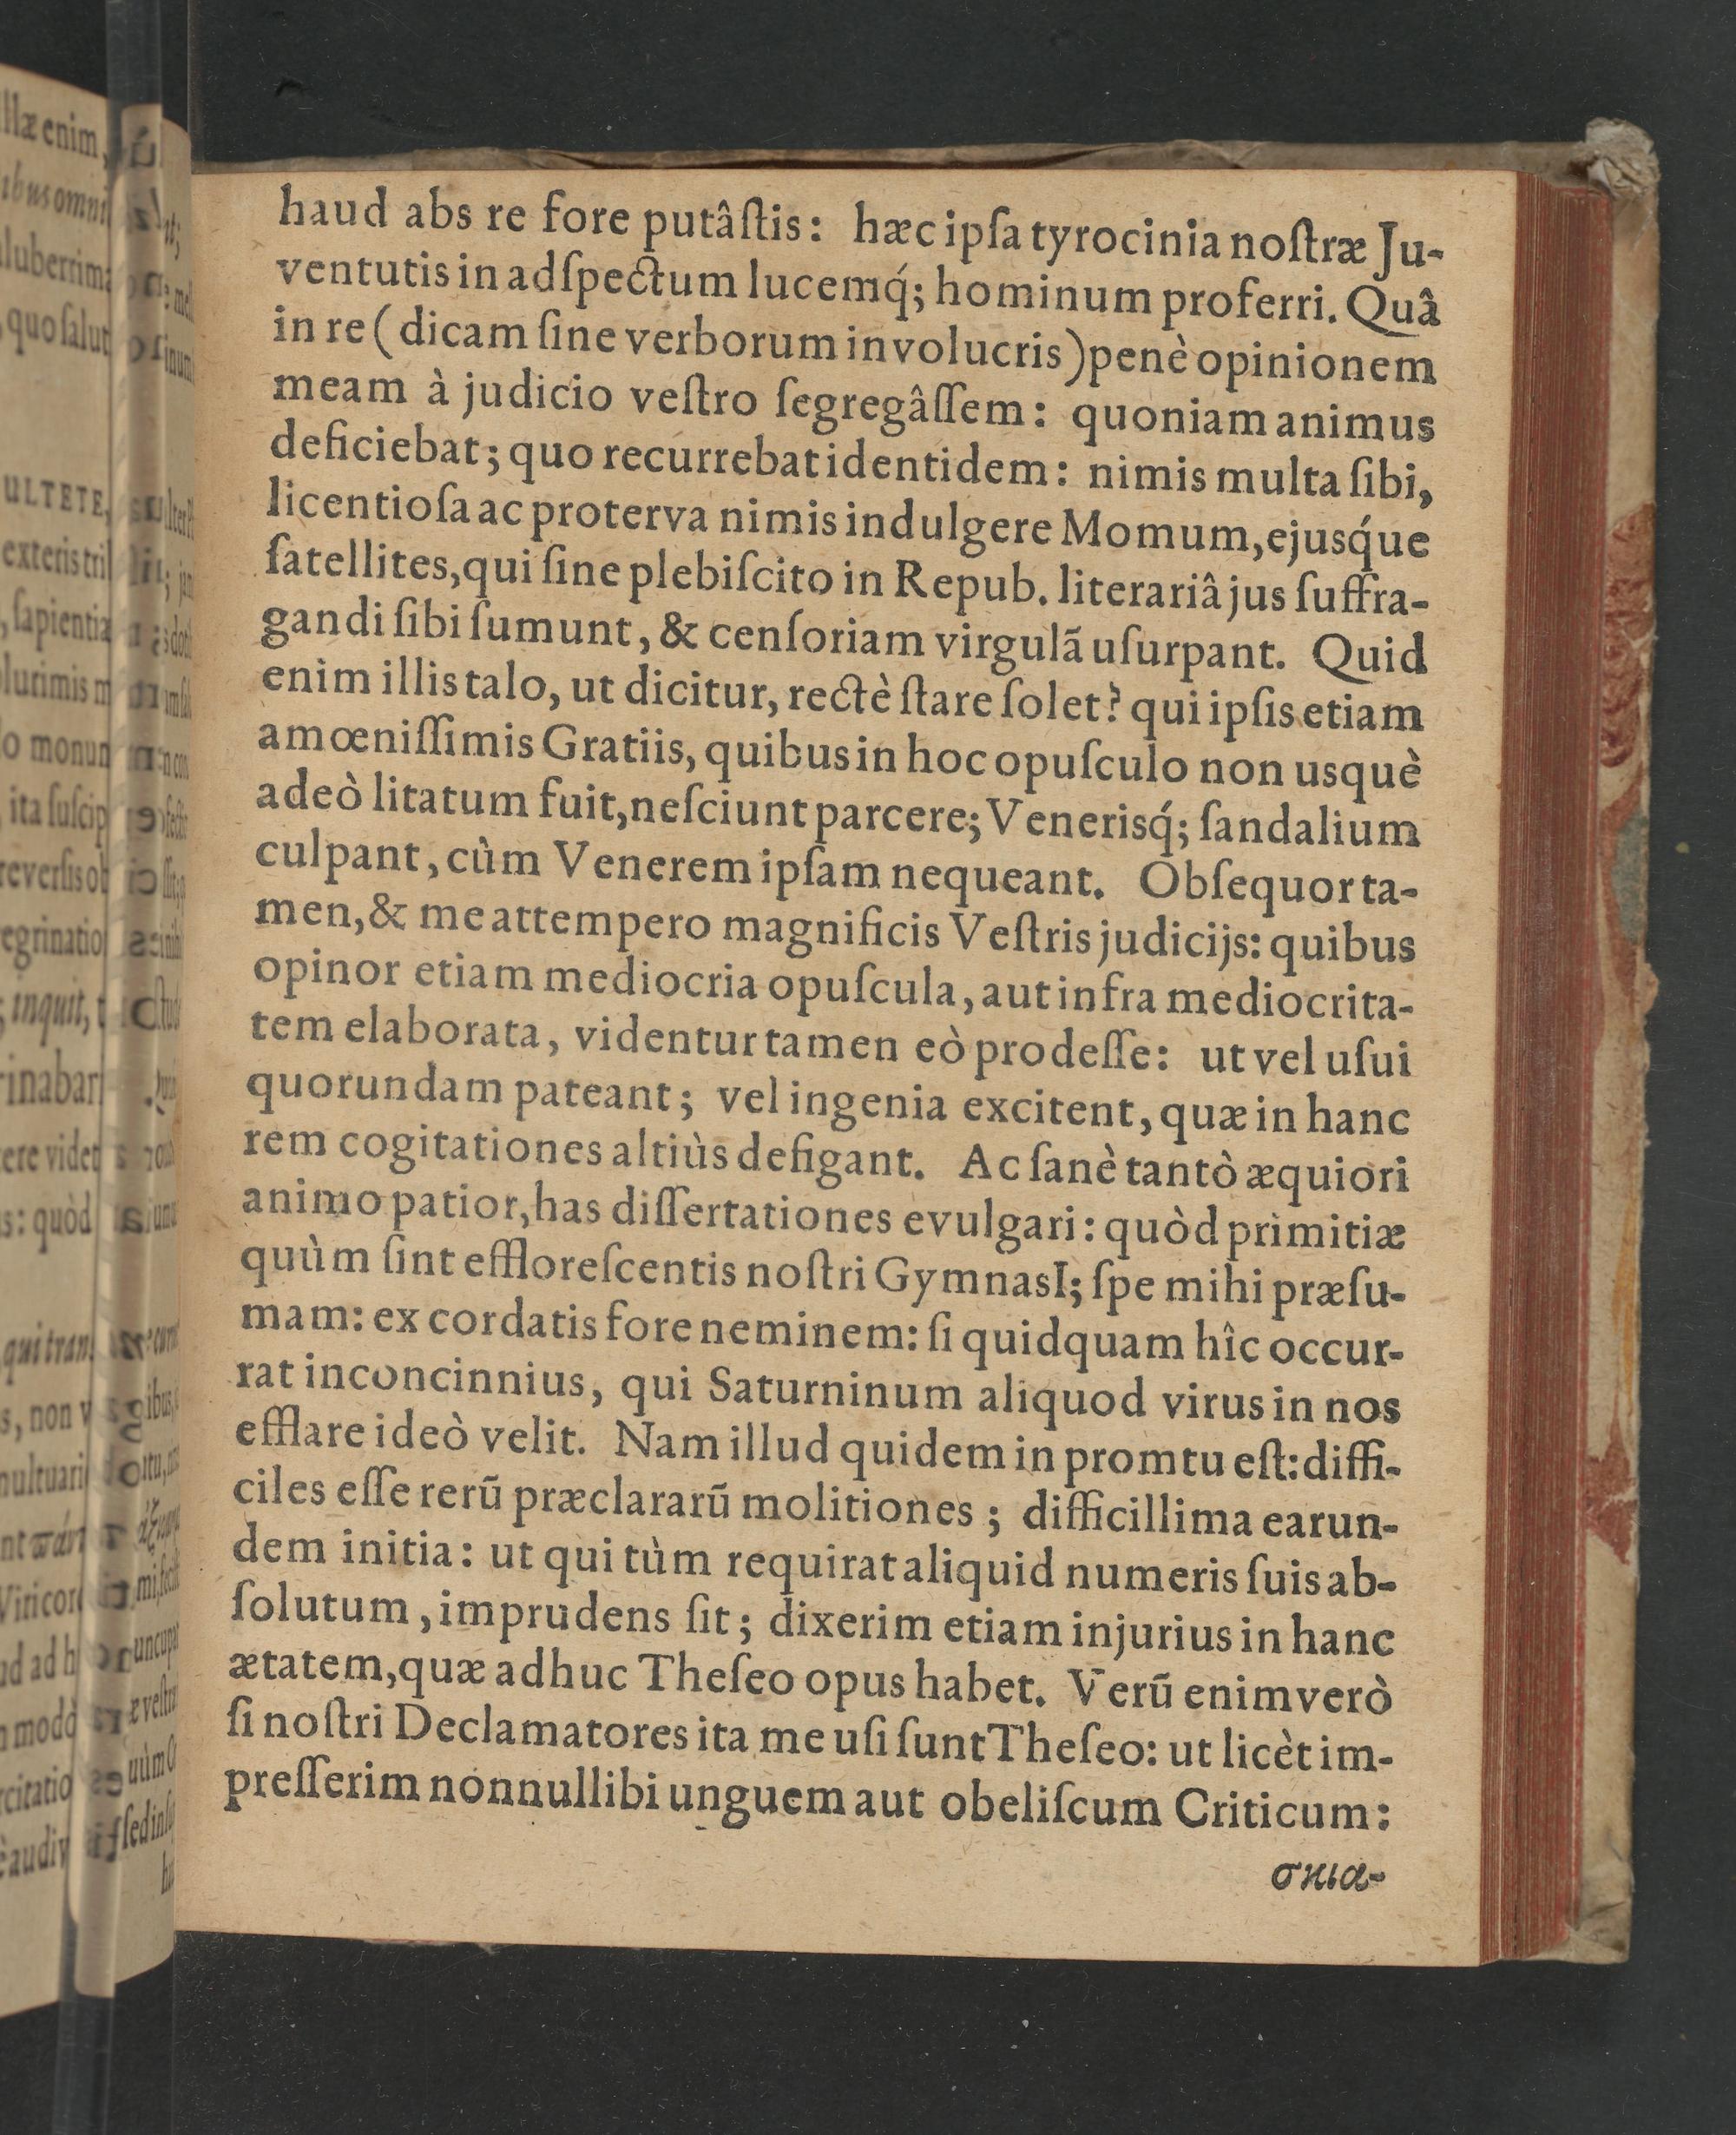 haud abs re fore putâſtis: hæc ipſa tyrocinia noſtræ Ju-
ventutis in adſpectum lucemq́; hominum proferri. Quâ
in re (dicam ſine verborum involucris) penè opinionem
meam à judicio veſtro ſegregâſſem: quoniam animus
deficiebat; quo recurrebat identidem: nimis multa ſibi,
licentioſa ac proterva nimis indulgere Momum, ejusq́ue
ſatellites, qui ſine plebiſcito in Repub. literariâ jus ſuffra-
gandi ſibi ſumunt, & cenſoriam virgulã uſurpant. Quid
enim illis talo, ut dicitur, rectè ſtare ſolet? qui ipſis etiam
amœniſſimis Gratiis, quibus in hoc opuſculo non usquè
adeò litatum fuit, neſciunt parcere; Venerisq́; ſandalium
culpant, cùm Venerem ipſam nequeant. Obſequor ta-
men, & me attempero magnificis Veſtris judicijs: quibus
opinor etiam mediocria opuſcula, aut infra mediocrita-
tem elaborata, videntur tamen eò prodeſſe: ut vel uſui
quorundam pateant; vel ingenia excitent, quæ in hanc
rem cogitationes altiùs defigant. Ac ſanè tantò æquiori
animo patior, has diſſertationes evulgari: quòd primitiæ
quùm ſint effloreſcentis noſtri GymnasI; ſpe mihi præſu-
mam: ex cordatis fore neminem: ſi quidquam hîc occur-
rat inconcinnius, qui Saturninum aliquod virus in nos
efflare ideò velit. Nam illud quidem in promtu eſt: diffi-
ciles eſſe rerũ præclararũ molitiones; difficillima earun-
dem initia: ut qui tùm requirat aliquid numeris ſuis ab-
ſolutum, imprudens ſit; dixerim etiam injurius in hanc
ætatem, quæ adhuc Theſeo opus habet. Verũ enimverò
ſi noſtri Declamatores ita me uſi ſunt Theſeo: ut licèt im-
preſſerim nonnullibi unguem aut obeliſcum Criticum:
σκια-